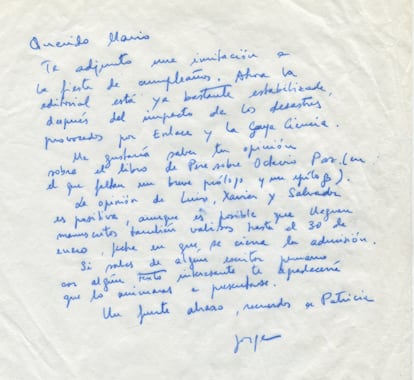 Querido Mario
Te adjunto una invitación a
la fiesta de cumpleaños. Ahora la
editorial está ya bastante estabilizada,
después del impacto de los desastres
provocados por Enlace y la Gaya Ciencia.
Me gustaría saber tu opinión
sobre el libro de Pere sobre Octavio Paz (en
el que faltan un breve prólogo y un epílogo).
La opinión de Luis, Xavier y Salvador
es positiva, aunque es posible que lleguen
manuscritos también valiosos hasta el 30 de
enero, fecha en que se cierra la admisión.
Si sabes de algún escritor peruano
con algún texto interesante te agradeceré
que lo animaras a presentarse.
Un fuerte abrazo, recuerdos a Patricia
Jorge